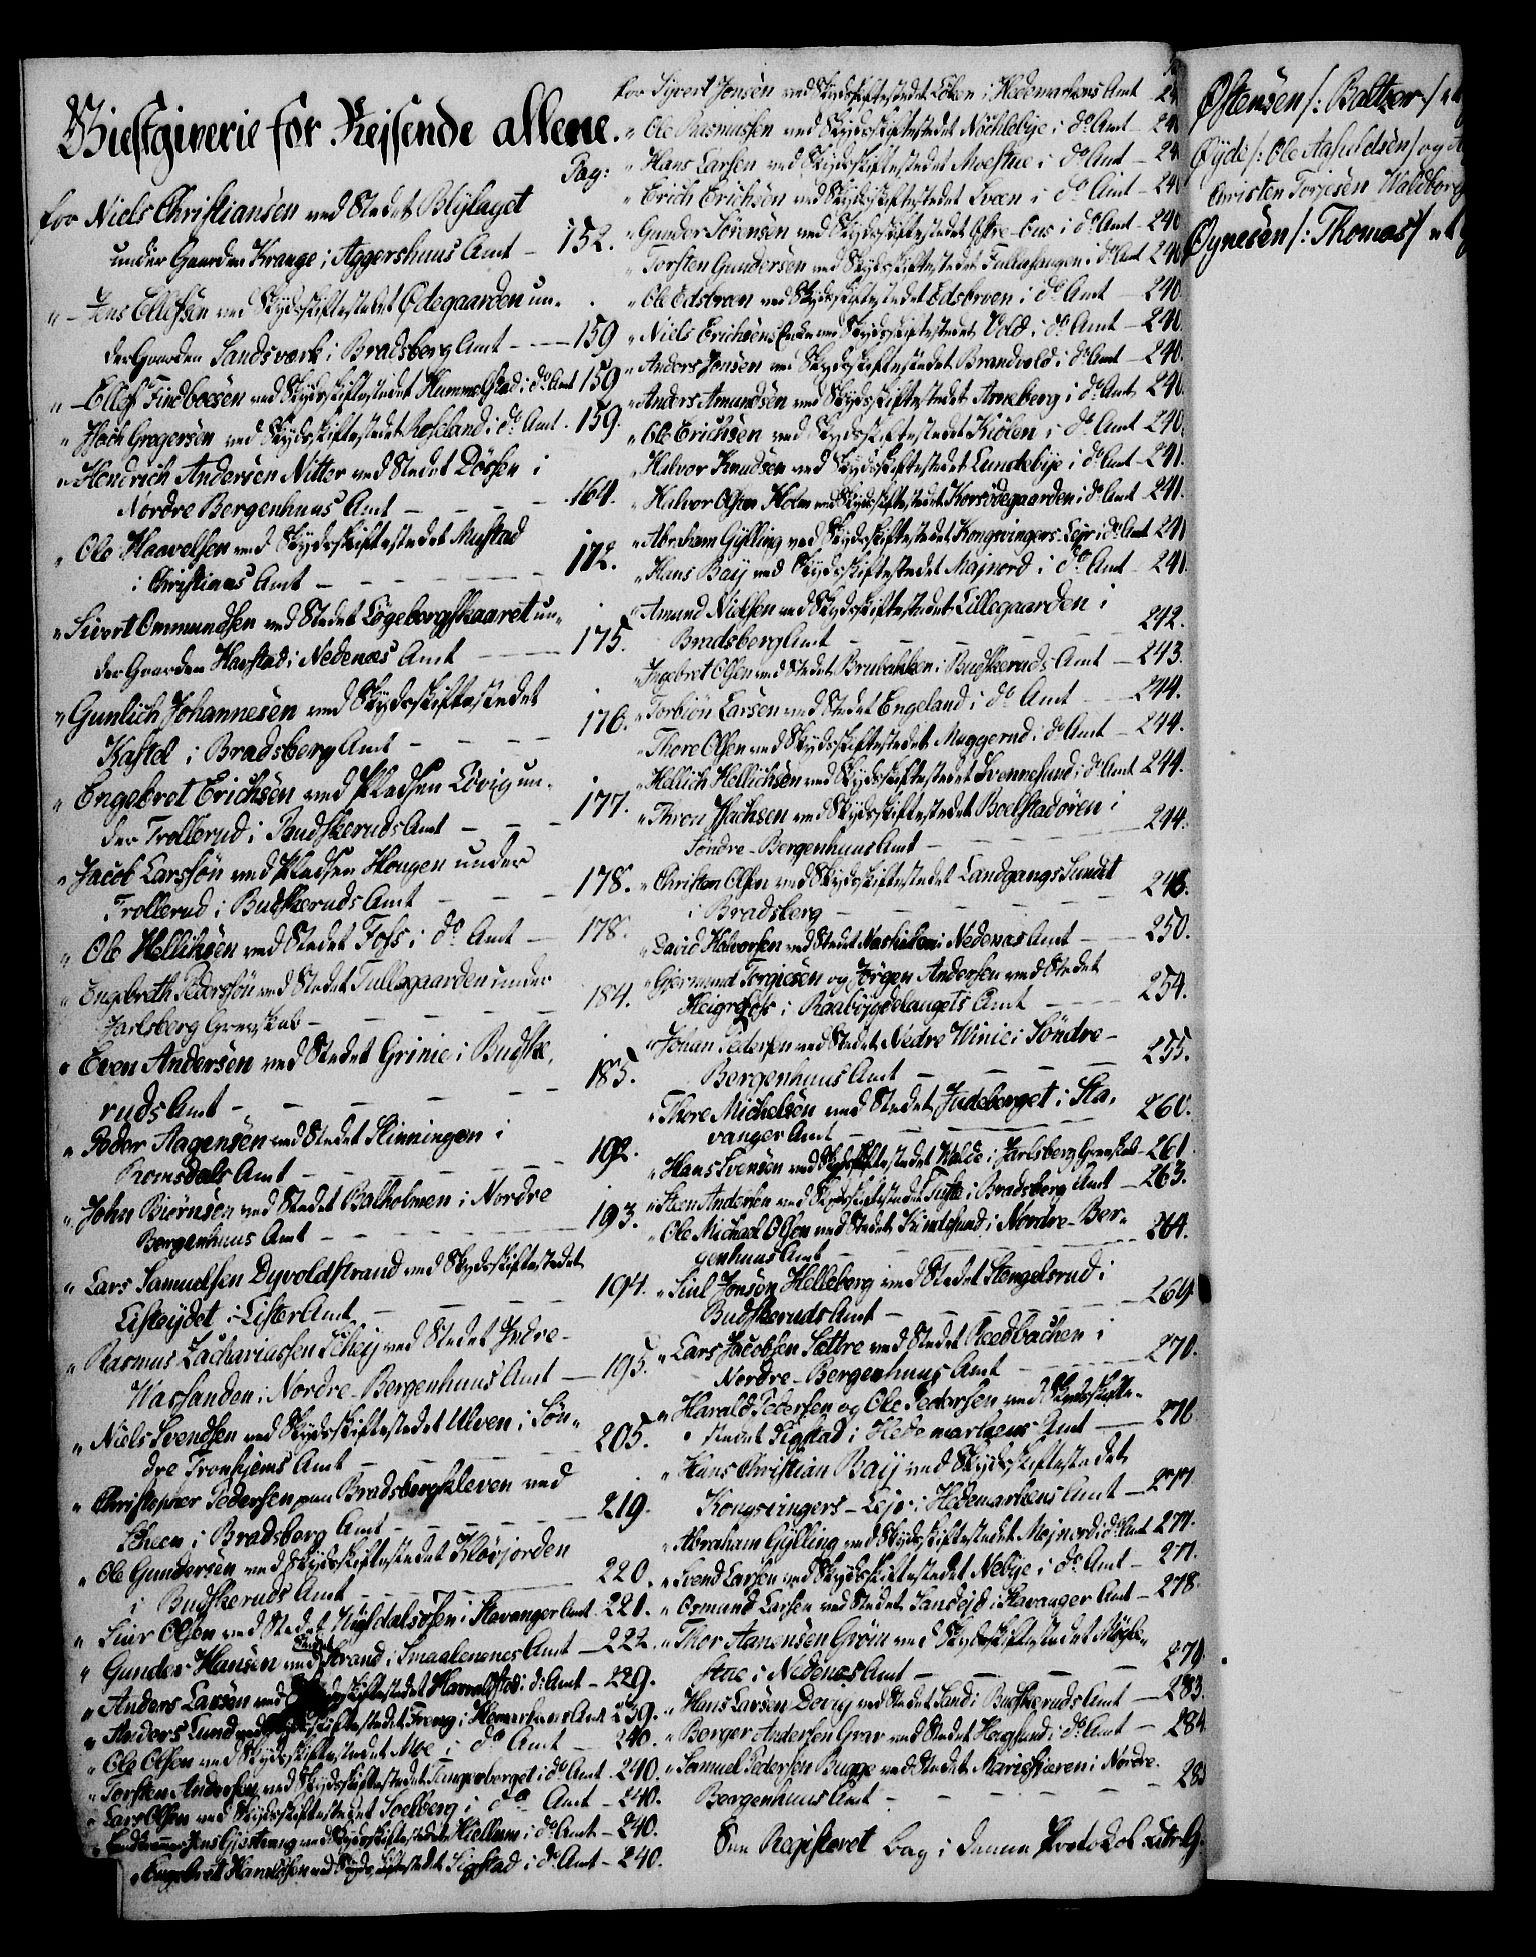 Giestgiverie for Reisende allene.
Pag:
for Niels Christiansen ved Stedet Blylaget
under Gaarden Krange i Aggershuus Amt - 152.
" Jens Ellefsen ved Skydsskiftestedet Ødegaarden un-
der Gaarden Landsverk i Bradsberg Amt - 159
" Ellef Findboesen ved Skydsskiftestedet Hummelstad i do Amt 159
" Isach Gregersen ved Skydsskiftestedet Roseland i do Amt. 159.
" Hendrich Andersen Nitter ved Stedet Døssen i
Nordre Bergenhuus Amt - 164.
" Ole Haavelsen ved Skydsskiftestedet Mustad
i Christians Amt - 172.
" Sivert Ommundsen ved Stedet Løgeborgskaaret un-
der Gaarden Havstad i Nedenæs Amt - 175.
" Gunlich Johannesen ved Skydsskiftestedet
Kastel i Bradsberg Amt - 176.
" Engebret Erichsen ved Pladsen Løvig un-
der Trollerud i Budskeruds Amt - 177.
" Jacob Larssøn ved Pladsen Hougen under
Trollerud i Budskeruds Amt - 178.
" Ole Hellichsen ved Stedet Foss i do Amt - 178.
" Engebreth Pederssøn ved Stedet Tullegaarden under
Jarlsberg Grevskab - 184.
" Even Andersen ved Stedet Grinie i Budske-
ruds Amt - 185.
" Peder Aagensen ved Stedet Slinningen i
Romsdals Amt - 192.
" John Biørnsen ved Stedet Balholmen i Nordre
Bergenhuus Amt - 193.
" Lars Samuelsen Dyvoldstrand ved Skydsskiftestedet
Listeydet i Lister Amt - 194.
" Rasmus Zachariassen Scheij ved Stedet Indre-
Wassenden i Nordre-Bergenhuus Amt - 195.
" Niels Svendsen ved Skydsskiftestedet Ulven i Søn-
dre Tronhjems Amt - 205.
" Christopher Pedersen paa Bradsbergkleven ved
Scheen i Bradsberg Amt - 219.
" Ole Gundersen ved Skydsskiftestedet Kløvjorden
i Budskeruds Amt - 220.
" Siur Olsen ved Stedet i Stavanger Amt 221.
" Gunder Hansen ved Stedet Strand i Smaalenenes Amt - 222.
" Anders Larsen ved Skydsskiftestedet Haraldstad i do Amt - 229.
" Anders Lund ved Skydsskiftestedet Freng i Hedemarkens Amt 239.
" Ole Olsen ved Skydsskiftestedet Moe i do Amt - 240.
" Torsten Andersen ved Skydsskiftestedet Tangerberget i do Amt 240.
" Lars Olsen ved Skydsskiftestedet Soelberg i do Amt - 240.
" Jens Gjøstvang ved Skydsskiftestedet Hiellum i do Amt - 240.
" Engebret Haraldsen ved Skydsskiftestedet Sigstad i do Amt - 240.
for Sivert Jonsen ved Skydsskiftestedet Løken i Hedemarkens Amt 24
" Ole Rasmussen ved Skydsskiftestedet Nøchlebije i do Amt - 240
" Hans Larsen ved Skydsskiftestedet Moestue i do Amt - 24
" Erich Erichsen ved Skydsskiftestedet Sveen i do Amt - 240
" Gunder Sørensen ved Skydsskiftestedet Østre-Ous i do Amt - 240
" Torsten Gundersen ved Skydsskiftestedet Fallasangen i do Amt 240
" Ole Edsbroen ved Skydsskiftestedet Edsbroen i do Amt - 240.
" Niels Erichsens Enke ved Skydsskiftestedet Vold i do Amt - 240.
" Anders Jonsen ved Skydsskiftestedet Brandvold i do Amt - 240.
" Anders Amundsen ved Skydsskiftestedet Arneberg i do Amt 240.
" Ole Erichsen ved Skydsskiftestedet Kiølen i do Amt 240.
" Halvor Knudsen ved Skydsskiftestedet Lundebije i do Amt - 241.
" Halvor Olsen Holm ved Skydsskiftestedet Korsødegaarden i do Amt 241.
" Abraham Gylling ved Skydsskiftestedet Kongsvingers-Lejr i do Amt 241
" Hans Baij ved Skydsskiftestedet Majnord i do Amt - 241.
" Amund Nielsen ved Skydsskiftestedet Lillegaarden i
Bradsberg Amt - 242.
" Ingebret Olsen ved Stedet Brubakken i Budskeruds Amt - 243.
" Torbiøn Larsen ved Stedet Engeland i do Amt - 244.
" Thore Olsen ved Skydsskiftestedet Muggerud i do Amt - 244.
" Hellich Hellichsen ved Skydsskiftestedet Svennesund i do Amt 244.
" Thron Isachsen ved Skydsskiftestedet Boelstadøren i
Søndre-Bergenhuus Amt - 244.
" Christen Olsen ved Skydsskiftestedet Landgangs Sundet
i Bradsberg - 248.
" David Halvorsen ved Stedet Naskilen i Nedenæs Amt - 250.
" Gjermund Torgiesen og Jørgen Andersen ved Stedet
Heigrefos i Raabygdelaugets Amt - 254.
" Johan Pedersen ved Stedet Nedre Winie i Søndre-
Bergenhuus Amt - 255.
" Thore Michelsen ved Stedet Judeberget i Sta-
vanger Amt - 260.
" Hans Svensen ved Skydsskiftestedet Walde i Jarlsberg Grevskab - 261.
" Steen Andersen ved Skydsskiftestedet i Bradsberg Amt - 263.
" Ole Michael Olsen ved Stedet Kindesund i Nordre-Ber-
genhuus Amt - 264.
" Siul Jonsøn Helleberg ved Stedet Stengelsrud i
Budskeruds Amt - 269
" Lars Jacobsen Sættre ved Stedet Reedbachen i
Nordre-Bergenhuus Amt - 270.
" Harald Pedersen og Ole Pedersen ved Skydsskifte-
stedet Sigstad i Hedemarkens Amt - 276
" Hans Christian Baij ved Skydsskiftestedet
Kongsvingers-Lejr i Hedemarkens Amt - 277
" Abraham Gylling ved Skydsskiftestedet Majnord i do Amt 277.
" Svend Larsen ved Skydsskiftestedet Nebije i do Amt - 277.
" Osmund Larsen ved Stedet Sandejd i Stavanger Amt - 278.
" Thor Aanensen Grøm ved Skydsskiftestedet Møgle-
stue i Nedenæs Amt - 279.
" Hans Larsen Dovig ved Stedet Sand i Budskeruds Amt - 283.
" Berger Andersen Grav ved Stedet Hougsund i do Amt - 284
" Samuel Pedersen Bugge ved Stedet Marieskiæren i Nordre-
Bergenhuus Amt - 285
See Registeret bag i denne Protokol Litr. G.
Østensen /: Baltzer /
Øyde /: Ole Aasuldsen / og
Christen Torjesen Waldborg
Øynesen /: Thomas /